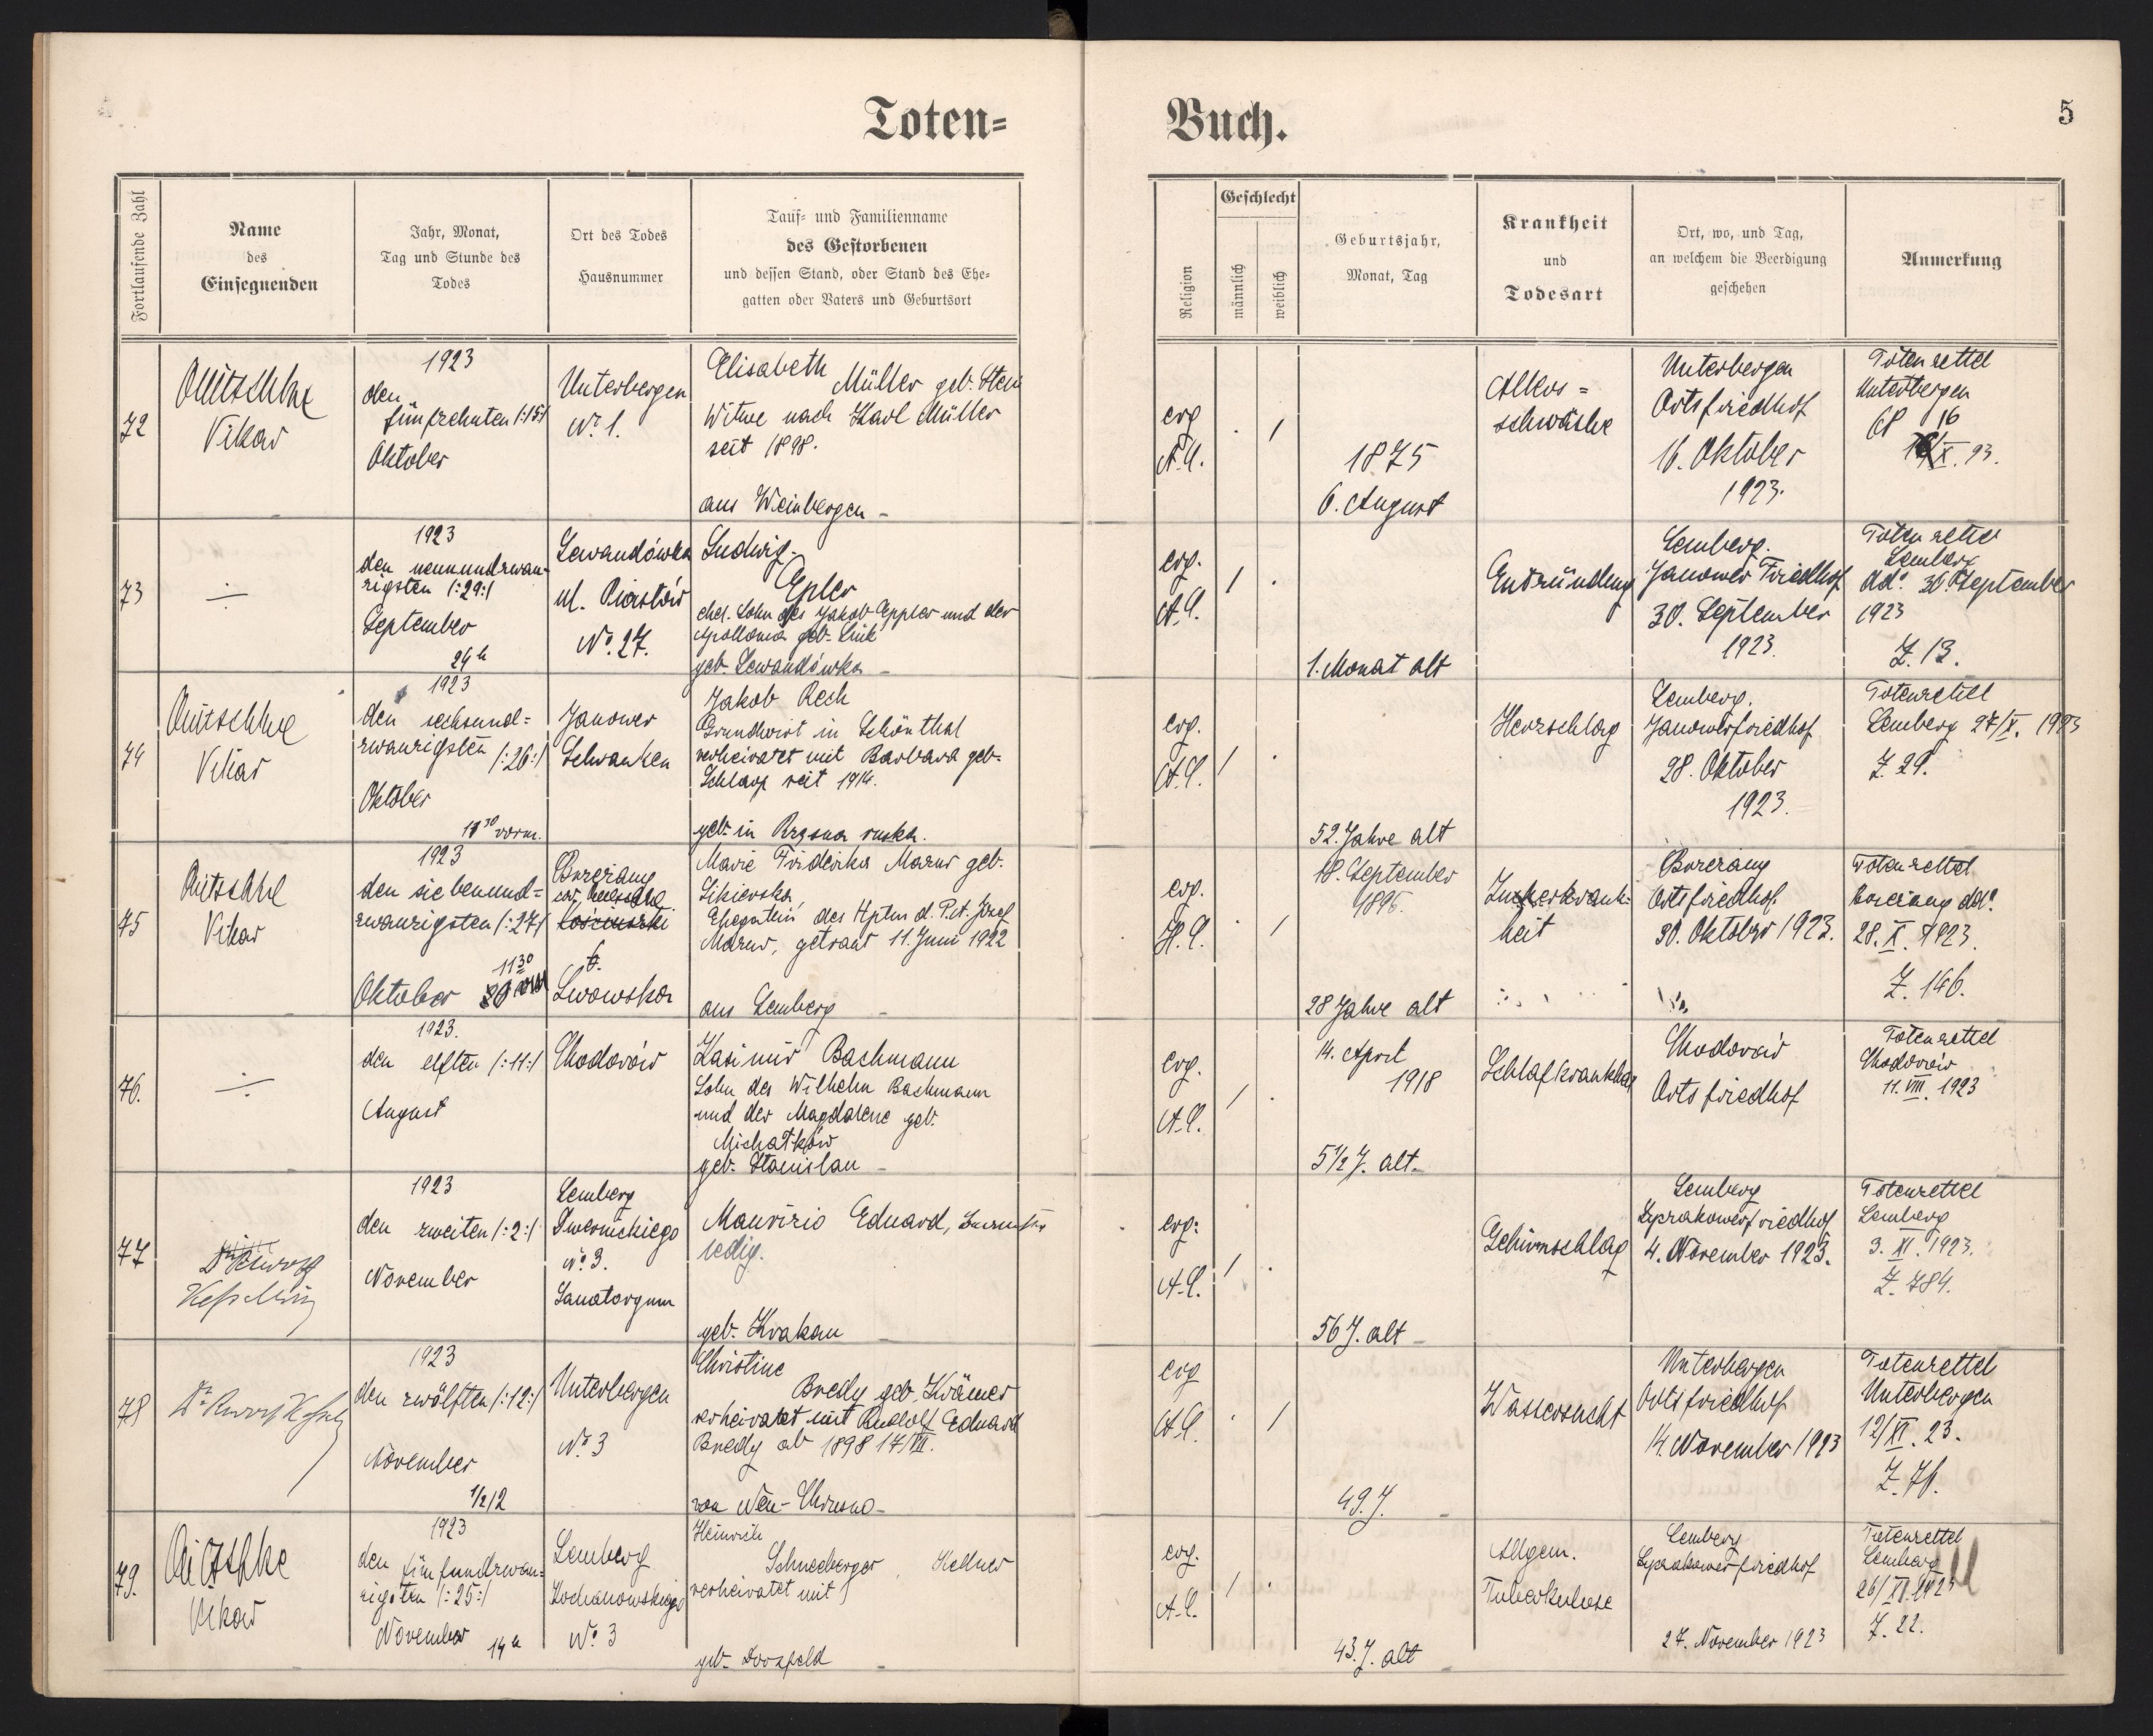 Toten=
Buch.
5
Fortlaufende Zahl
Name
des
Einsegnenden
Jahr, Monat,
Tag und Stunde des
Todes
Ort des Todes
Hausnummer
Tauf= und Familienname
des Gestorbenen
und dessen Stand, oder Stand des Ehe=
gatten oder Vaters und Geburtsort
Religion
Geschlecht
männlich
weiblich
Geburtsjahr,
Monat, Tag
Krankheit
und
Todesart
Ort, wo, und Tag,
an welchem die Beerdigung
geschehen
Anmerkung
72
Vikar
1923
den
fünfzehnten /:15:/
Oktober
Unterbergen
No. 1.
Elisabeth
Müller geb. Stein
Witwe nach Karl Müller
seit 1898.
aus Weinbergen -
evg
A.C.
1875
6. August
Alters =
schwäche
Unterbergen
Ortsfriedhof
16. Oktober
1923.
Totenzettel
Unterbergen
68 16
X. 23.
73
1923
den neunundzwan-
zigsten /:29:/
September
24h
Lewandówka
ul. Piastów
No. 27.
Ludwig
Epler
ehel. Sohn des Jakob Eppler und der
Apollonia geb. Link
geb. Lewandówka -
evg.
A.C.
1. Monat alt
Entzündung
Lemberg.
Janower Friedhof
30. September
1923.
Totenzettel
Lemberg
dd. 30. September
1923
Z. 13.
74
Vikar
1923
den sechsund=
zwanzigsten /:26:/
Oktober
11 30 vorm.
Janower
Schranken
Jakob Rech
Grundwirt in Schönthal
verheiratet mit Barbara geb.
Schlarp seit 1914.
geb. in Rzęsna ruska.
evg.
A.C.
52. Jahre alt
Herzschlag
Lemberg.
Janowerfriedhof
28. Oktober
1923.
Totenzettel
Lemberg 27/X. 1923
Z. 29.
75
Vikar
1923
den siebenund=
zwanzigsten /:27:/
11 30
Oktober
Lwowska
Marie Friderika
geb.
Ehegattin des Hptm d. Józef
getraut 11. Juni 1922
aus Lemberg -
evg.
H.C.
18. September
1896.
28 Jahre alt
Zuckerkrank-
heit
Ortsfriedhof
30. Oktober 1923.
Totenzettel
28. X. 1923.
Z. 146.
76.
1923.
den elften /:11:/
August
Chodorów
Kasimir Bachmann
Sohn des Wilhelm Bachmann
und der Magdalene geb.
Michatków
geb. Stanislau -
evg.
A.C.
14. April
1918
5 1/2 J. alt.
Schlafkrankheit
Chodorów
Ortsfriedhof
Totenzettel
Chodorów
11. VIII. 1923
77
Kesselring
1923
den zweiten /:2:/
November
Lemberg
Dwernickiego
No. 3.
Sanatoryum
Maurizio Eduard,
ledig.
geb. Krakau -
evg.
A.C.
56 J. alt -
Gehirnschlag
Lemberg
Lyczakowerfriedhof
4. November 1923.
Totenzettel
Lemberg
3. XI. 1923.
Z. 784.
78
1923
den zwölften /:12:/
November
1/2 12
Unterbergen
No. 3
Christine
Bredy geb. Krämer
verheiratet mit Rudolf Eduard
Bredy ab 1898 17/VII.
von Neu-Chrusno -
evg
A.C.
49. J. -
Wassersucht
Unterbergen
Ortsfriedhof
14. November 1923
Totenzettel
Unterbergen
12/XI. 23.
Z. 76.
79.
Vikar
1923
den fünfundzwan=
zigsten /:25:/
November 14h
Lemberg
Kochanowskiego
No. 3
Heinrich
Schneeberger, Kellner
verheiratet mit
geb. Dornfeld -
evg.
A.C.
43. J. alt -
Allgem.
Tuberkulose
Lemberg
Lyczakowerfriedhof
27. November 1923
Totenzettel
Lemberg
26/XI. 1923
Z. 22.